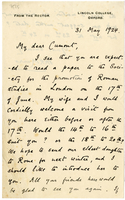 FROM THE RECTOR,
LINCOLN COLLEGE,
OXFORD.
31 May 1924
My dear Cumont,
I see that you are expect-
ed to read a paper to the Soci-
ety for the promotion of Roman
studies in London on the 17th
of June. My wife and I will
cordially welcome a visit from
you here either before or after the
17th. Would the 16th to 16th
suit you, or the 18th to
We hope to send our eldest daughter
to Rome for next winter, and
should like to introduce her to
you. All your friends here would
be glad to see you again. If